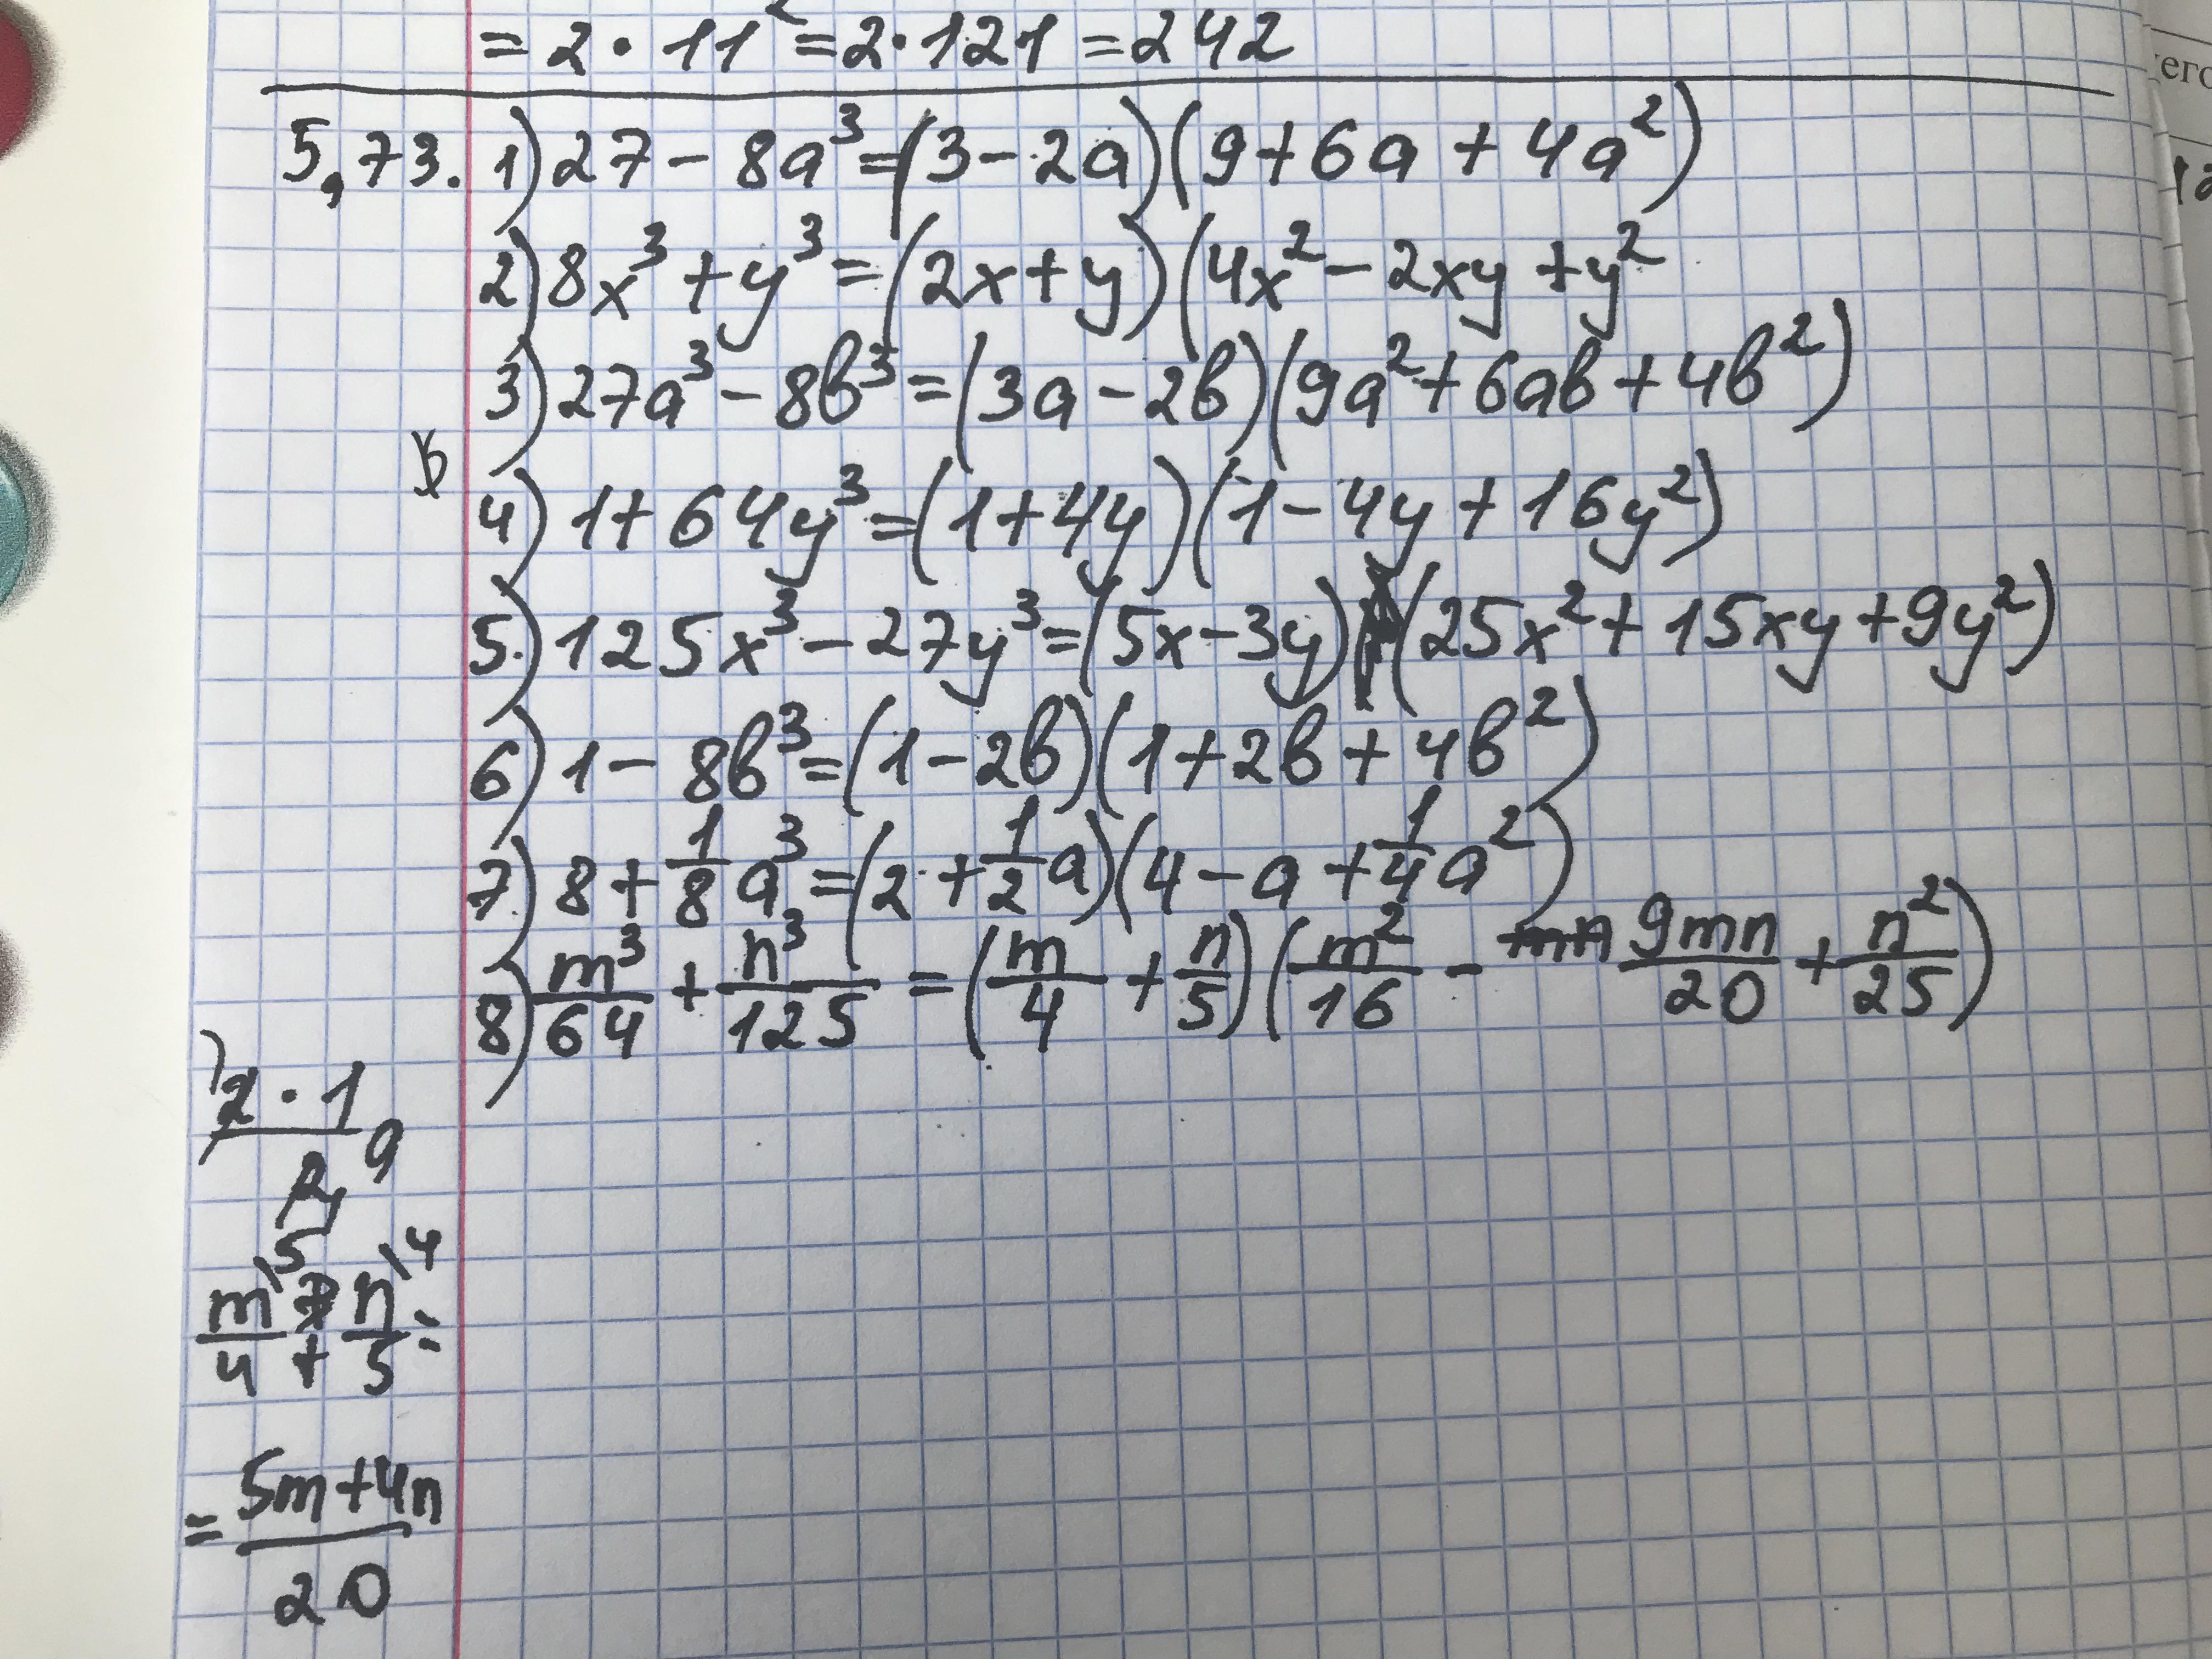 = 2 · 11² = 2 · 121 = 242
5,73. 1) 27 - 8a³ = (3 - 2a)(9 + 6a + 4a²)
2) 8x³ + y³ = (2x + y)(4x² - 2xy + y²
3) 27a³ - 8b³ = (3a - 2b)(9a² + 6ab + 4b²)
4) 1 + 64y³ = (1 + 4y)(1 - 4y + 16y²)
5.) 125x³ - 27y³ = (5x - 3y)(25x² + 15xy + 9y²)
6) 1 - 8b³ = (1 - 2b)(1 + 2b + 4b²)
7) 8 + 1/8 a³ = (2 + 1/2 a)(4 - a + 1/4 a²)
8) m³/64 + n³/125 = (m/4 + n/5)(m²/16 - mn 9mn/20 + n²/25)
2 · 1
2 a
m\5 n\4
4 + 5 =
= 5m + 4n
20
его